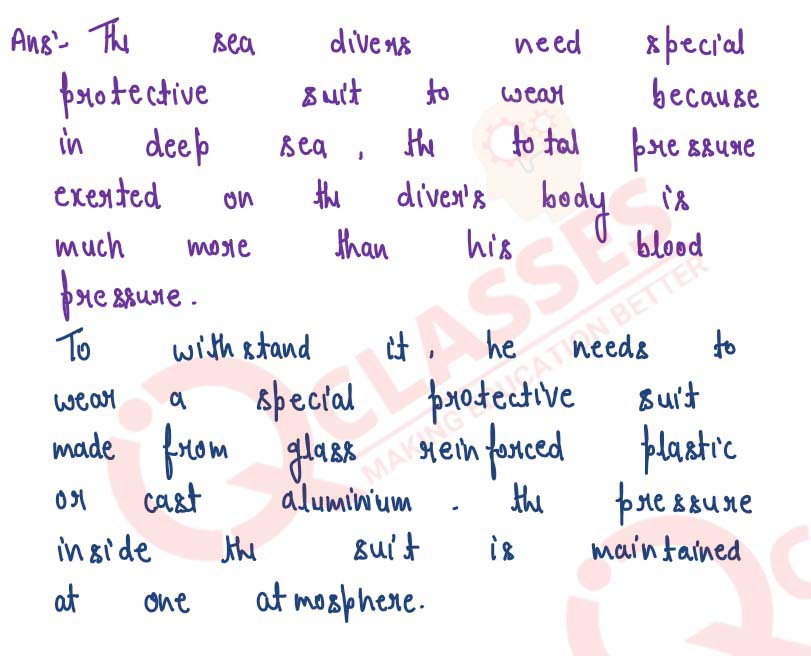 Ans:- The sea divers need special
protective suit to wear because
in deep sea, the total pressure
exerted on the diver's body is
much more than his blood
pressure.
To withstand it, he needs to
wear a special protective suit
made from glass reinforced plastic
or cast aluminium. the pressure
inside the suit is maintained
at one atmosphere.
IQ CLASSES
MAKING EDUCATION BETTER